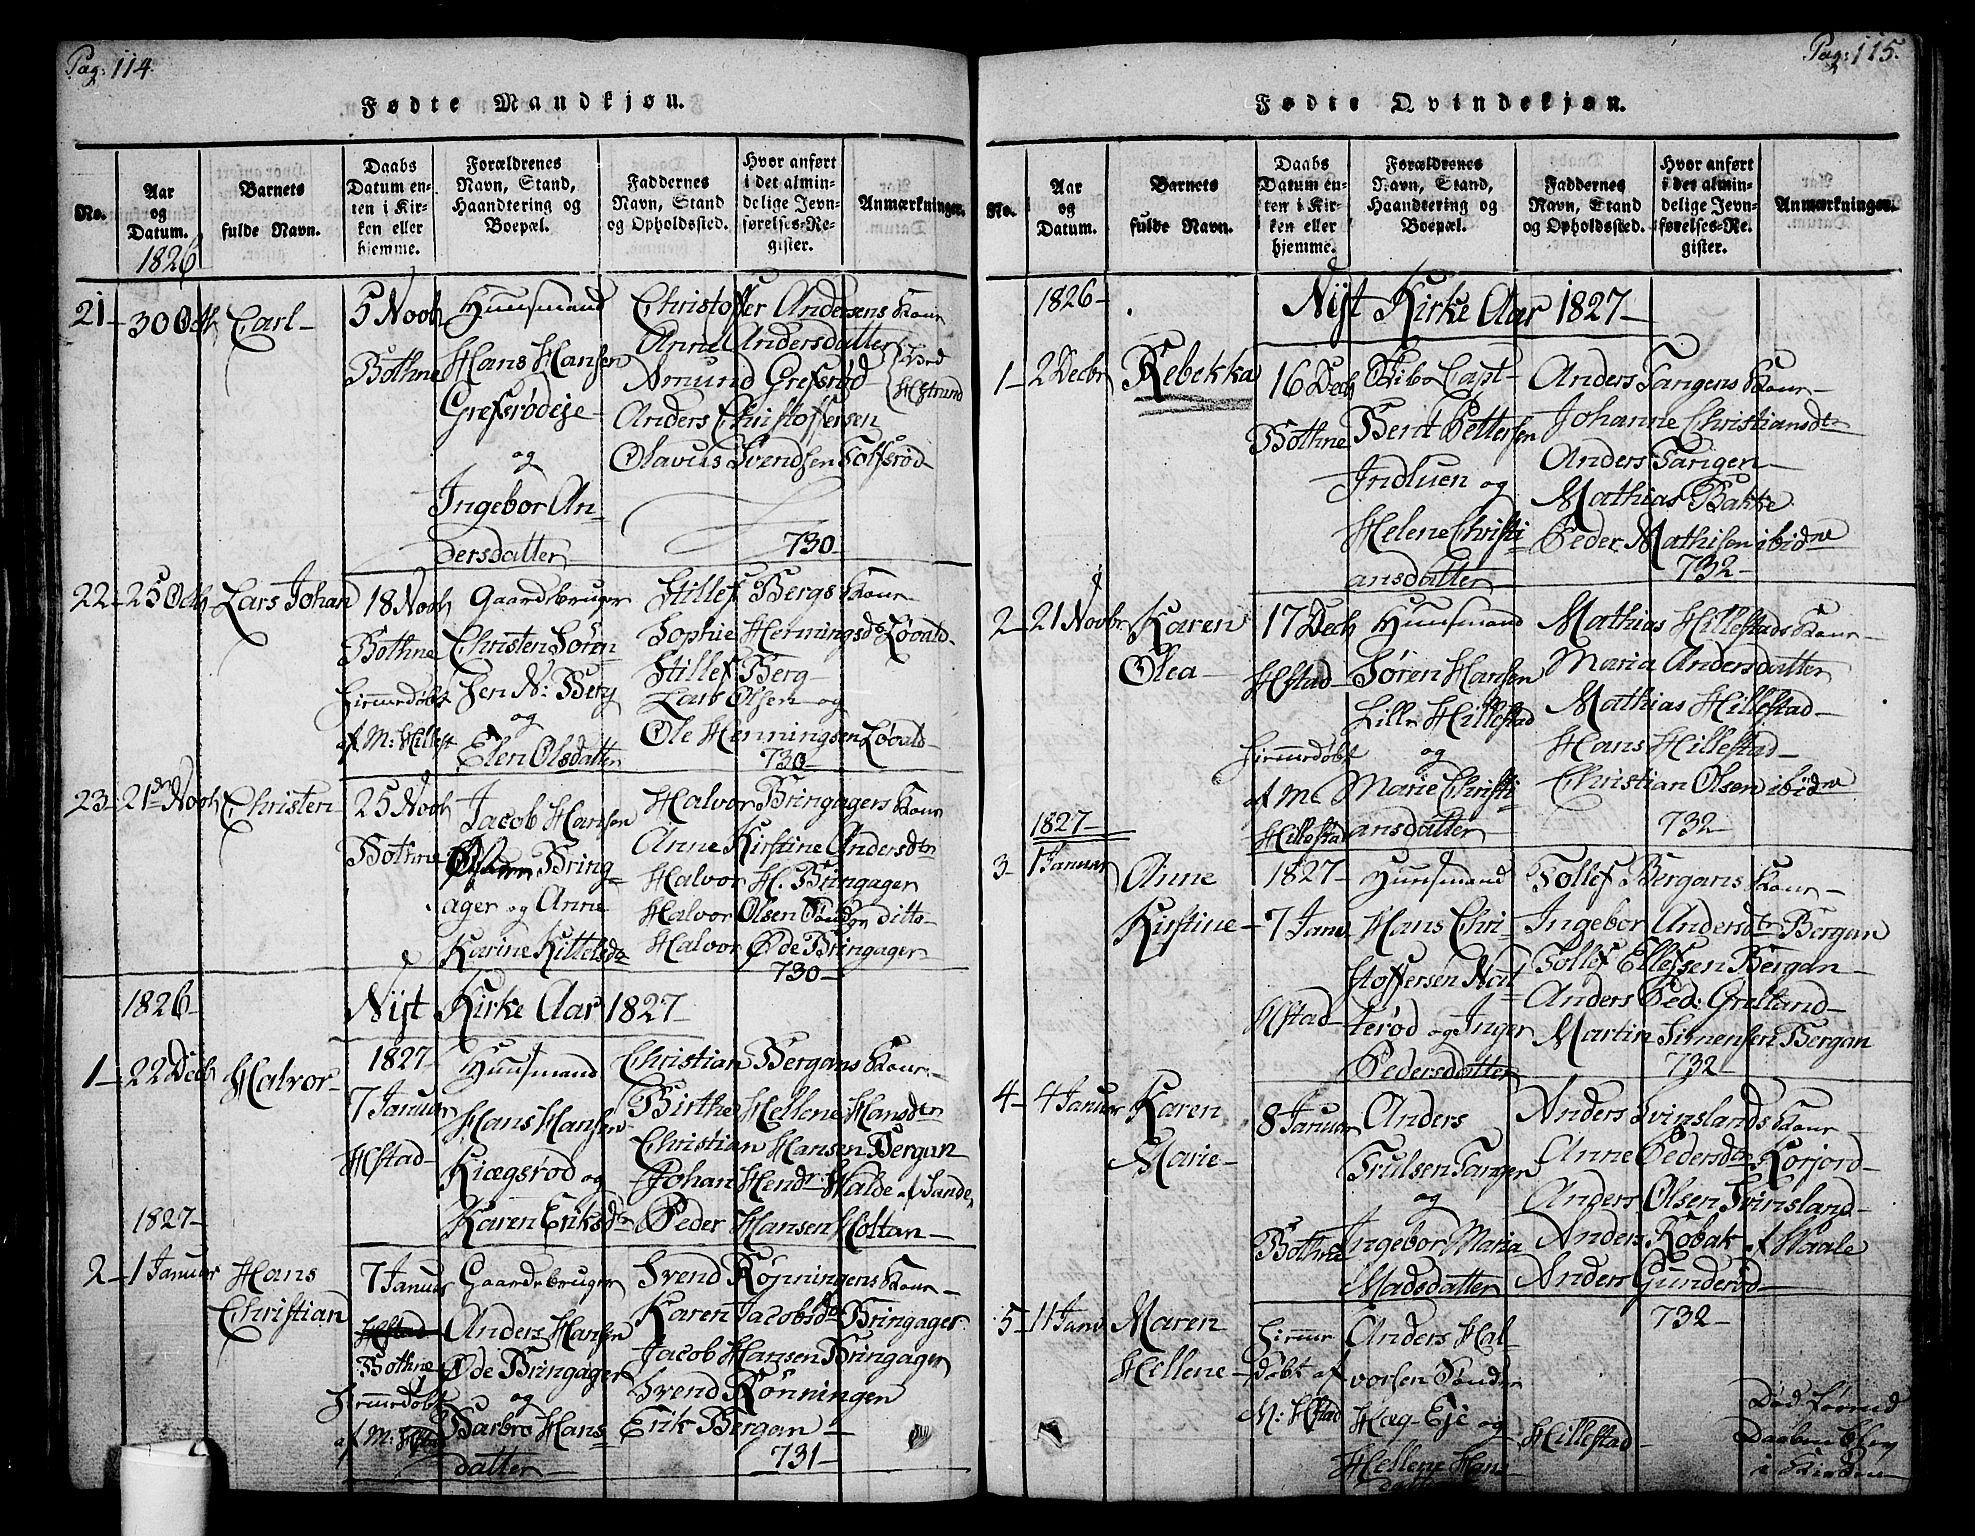 Pag: 114.
Fødte Mandkjøn.
No.
Aar og Datum.
1826
Barnets fulde Navn.
Daabs Datum enten i Kirken eller hjemme.
Forældrenes Navn, Stand, Haandtering og Boepæl.
Faddernes Navn, Stand og Opholdssted.
Hvor anført i det almindelige Jevnførelses-Register.
Anmærkninger.
21-
30 Octb
Carl-
5 Novb
Bothne
Huusmand
Hans Hansen
Grefsrødeje
og
Ingebor An-
dersdatter
Christoffer Andersens Kone
Anne Andersdatter
Amund Grefsrød-
Anders Christoffersen
Olavus Svendsen Tolfsrød-
730-
22-
25 Octb
Lars Johan
18 Novb
Bothne
Hiemmedøbt
af M: Hillest
Gaardbruger
Christen Sören
sen N: Berg
og
Elen Olsdatter
Stillef Bergs Kone
Sophie Henningsd: Løvald-
Stillef Berg-
Lars Olsen og
Ole Henningsen Løvald-
730-
23-
21de Novb
Christen
25 Novb
Bothne
Jacob Hansen
Bring-
ager og Anne
Karine Kittelsda
Halvor Bringagers Kone
Anne Kirstine Andersdtr
Halvor H. Bringager
Halvor Olsen Sønder ditto-
Halvor Øde Bringager
730-
1826
Nyt Kirke Aar 1827-
1-
22 Decb
Halvor-
1827
7 Januar
Hfstad-
Huusmand
Hans Hansen
Kiægsrød og
Karen Eriksdtr
Christian Bergans Kone-
Birthe Hellene Hansdtr
Christian Hansen Bergan
Johan Hendr: Halde af Sande,
Peder Hansen Holtan-
1827-
2-
1 Januar
Hans
Christian
7 Januar
Hfstad
Bothne
Hiemmedøbt
af M:
Gaardebruger
Anders Hansen
Øde Bringager
og
Barbro Hans-
datter-
Svend Rönningens Kone-
Karen Jacobsda Bringager
Jacob Hansen Bringager
Svend Rönningen
Erik Bergan-
731-
Pag: 115.
Fødte Qvindekjøn.
No.
Aar og Datum.
Barnets fulde Navn.
Daabs Datum enten i Kirken eller hjemme.
Forældrenes Navn, Stand, Haandtering og Boepæl.
Faddernes Navn, Stand og Opholdssted.
Hvor anført i det almindelige Jevnførelses-Register.
Anmærkninger.
1826-
Nyt Kirke Aar 1827-
1-
2 Decbr
Rebekka
16 Decb
Bothne
Skibs Capt-
Bent Pettersen
Indluen og
Helene Christi
ansdatter
Anders Tangens Kone-
Johanne Christiansdtr
Anders Tangen-
Mathias Bakke
Peder Mathisen ibidne
732-
2-
21 Novbr
Karen
Olea-
17 Decb
Hfstad-
Hiemmedøbt
af M:
Hillestad
Huusmand
Søren Hansen
Lille Hillestad
og
Marie Christi
ansdatter
Mathias Hillestads Kone-
Maria Andersdatter
Mathias Hillestad-
Hans Hillestad-
Christian Olsen ibidne
732-
1827-
3-
1 Januar
Anne
Kirstine-
1827-
7 Janu
Hfstad-
Huusmand
Hans Chri-
stoffersen Nat
terød og Inger
Pedersdatter
Tollef Bergans Kone-
Ingebor Andersdtr Bergan
Tollef Ellefsen Bergan-
Anders Ped: Grelland-
Martin Simensen Bergan
732-
4-
4 Januar
Karen
Marie-
8 Januar
Bothne
Anders
Trulsen Tangen
og
Ingebor Maria
Madsdatter
Anders Svinslands Kone-
Anne Pedersda Korjord-
Anders Olsen Svinsland-
Anders Robak af Skaale
Anders Gunderød-
732-
5-
11 Janu
Maren
Hellene-
Hiemme
døbt af
M: Hfstad
Anders Hal-
vorsen Sönder
Hæg-Eje og
Hellene Hans
Hillestad-
Död förend
Daaben blev
i Kirken